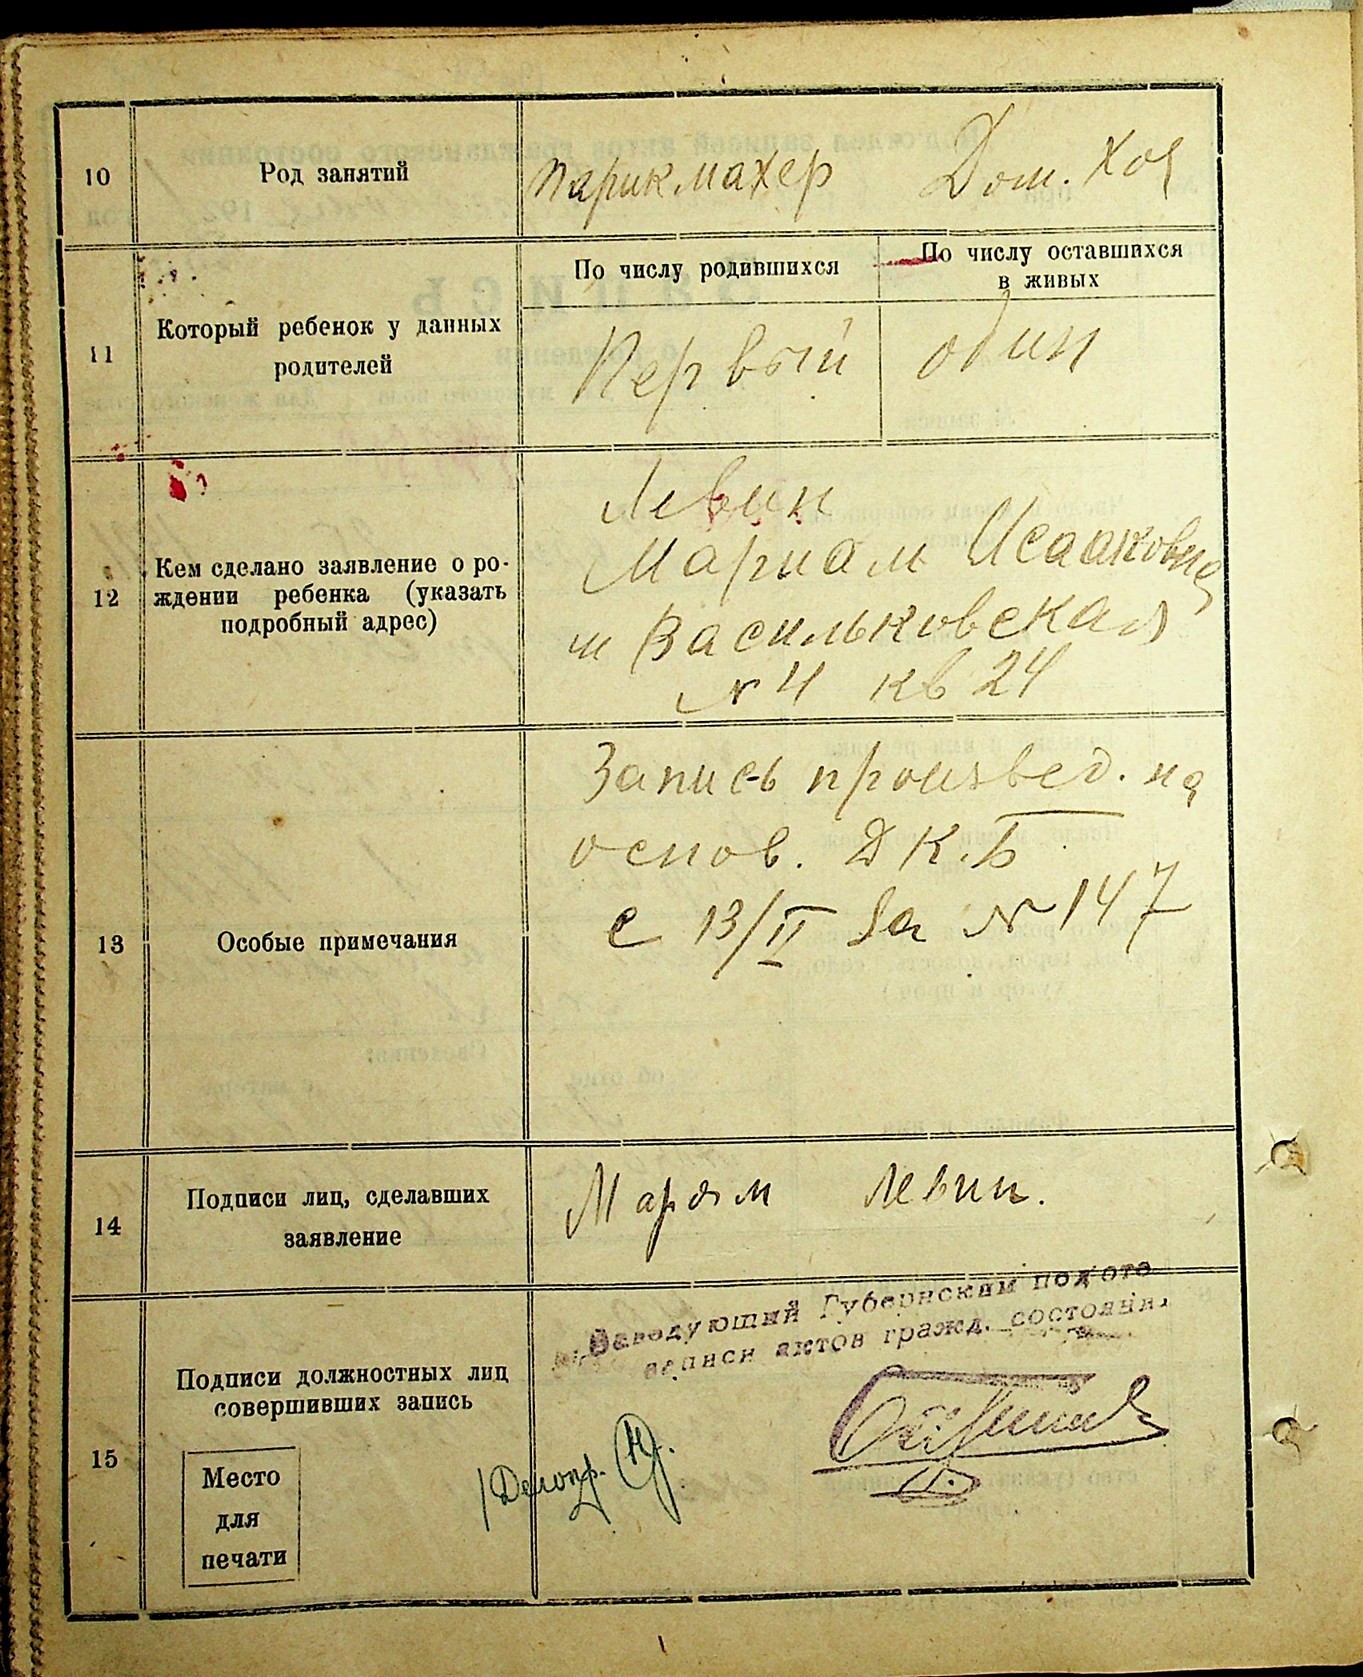 10
Род занятий
парикмахер
Дом. Хоз
11
Который ребенок у данных
родителей
По числу родившихся
По числу оставшихся
в живых
Первый
один
12
Кем сделано заявление о ро-
ждении ребенка (указать
подробный адрес)
Левин
Мариам Исааковна
м Васильковская
№ 4 кв 24
13
Особые примечания
Запись произвед. на
основ. Д К. Б
с 13/II за № 147
14
Подписи лиц, сделавших
заявление
Марьям Левин.
15
Подписи должностных лиц
совершивших запись
Место
для
печати
Заведующий Губернским под'отд
записи актов гражд. состояния
Делопр.